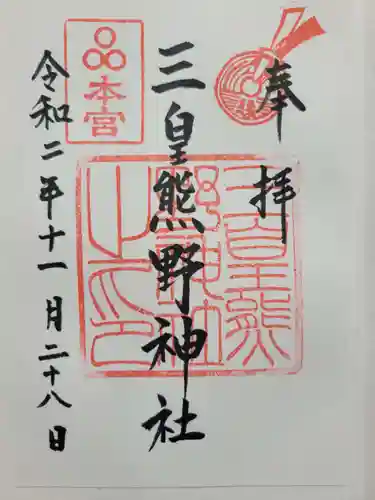 奉拝
三皇熊野神社
本宮
令和二年十一月二十八日
三皇熊
野神社
之印